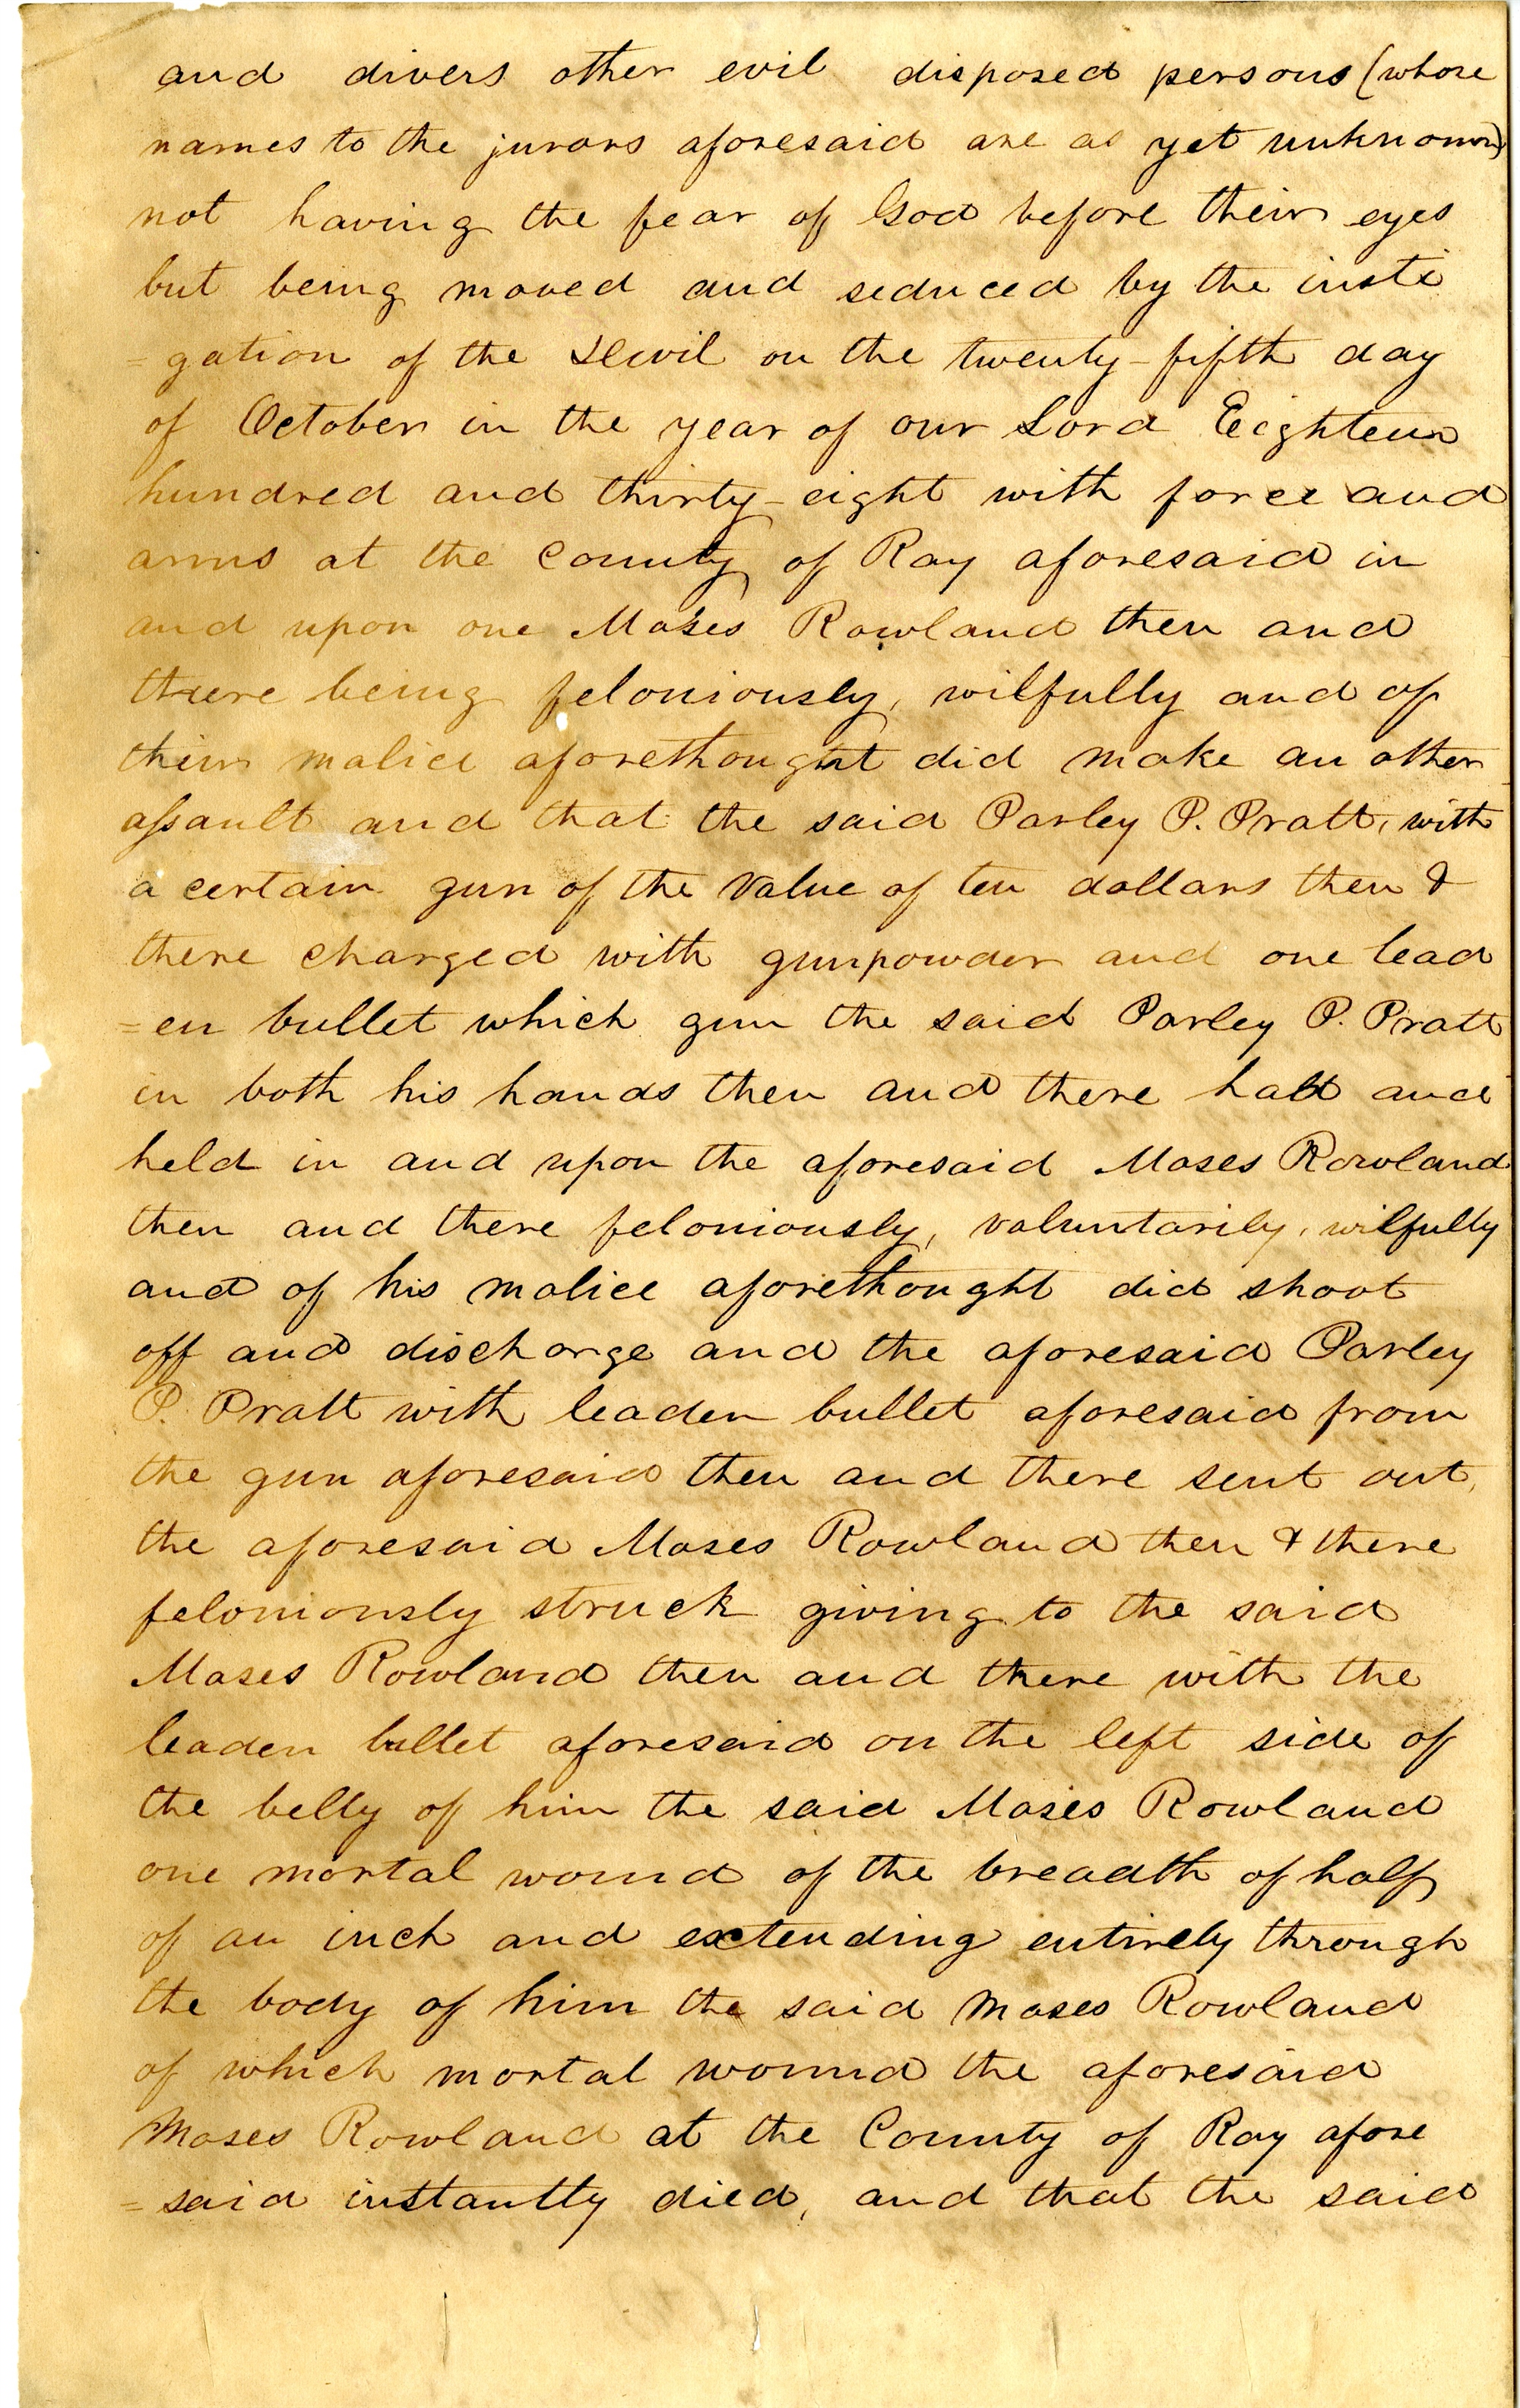 and divers other evil disposed persons (whose
names to the jurors aforesaid are as yet unknown)
not having the fear of God before their eyes
but being moved and seduced by the insti
=gation of the Devil on the twenty-fifth day
of October in the year of our Lord Eighteen
hundred and thirty-eight with force and
arms at the County of Ray aforesaid in
and upon one Moses Rowland then and
there being feloniously, wilfully and of
their malice aforethought did make an other
assault and that the said Parley P. Pratt, with
a certain gun of the value of ten dollars then &
there charged with gunpowder and one lead
=en bullet which gun the said Parley P. Pratt
in both his hands then and there had and
held in and upon the aforesaid Moses Rowland
then and there feloniously, voluntarily, wilfully
and of his malice aforethought did shoot
off and discharge and the aforesaid Parley
P. Pratt with leaden bullet aforesaid from
the gun aforesaid then and there sent out,
the aforesaid Moses Rowland then & there
feloniously struck giving to the said
Moses Rowland then and there with the
leaden bullet aforesaid on the left side of
the belly of him the said Moses Rowland
one mortal wound of the breadth of half
of an inch and extending entirely through
the body of him the said Moses Rowland
of which mortal wound the aforesaid
Moses Rowland at the County of Ray afore
=said instantly died, and that the said